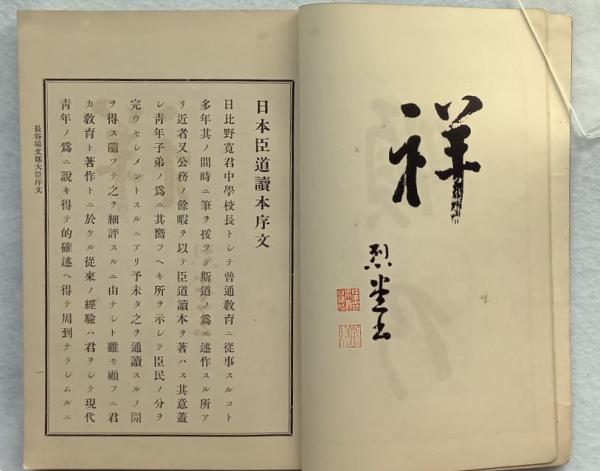 祥
烈堂書
日本臣道讀本序文
日比野寛君中學校長トシテ普通教育ニ從事スルコト
多年其ノ間時ニ筆ヲ援ツテ斯道ノ爲ニ述作スル所ア
リ近者又公務ノ餘暇ヲ以テ臣道讀本ヲ著ハス其意蓋
シ青年子弟ノ爲ニ其嚮フヘキ所ヲ示シテ臣民ノ分ヲ
完ウセシメントスルニアリ予未タ之ヲ通讀スルノ閒
ヲ得ス隨ツテ之ヲ細評スルニ由ナシト雖モ顧フニ君
カ教育ト著作トニ於ケル從來ノ經驗ハ君ヲシテ現代
青年ノ爲ニ説キ得テ的確述ヘ得テ周到ナラシムルニ
長谷場文部大臣序文
一